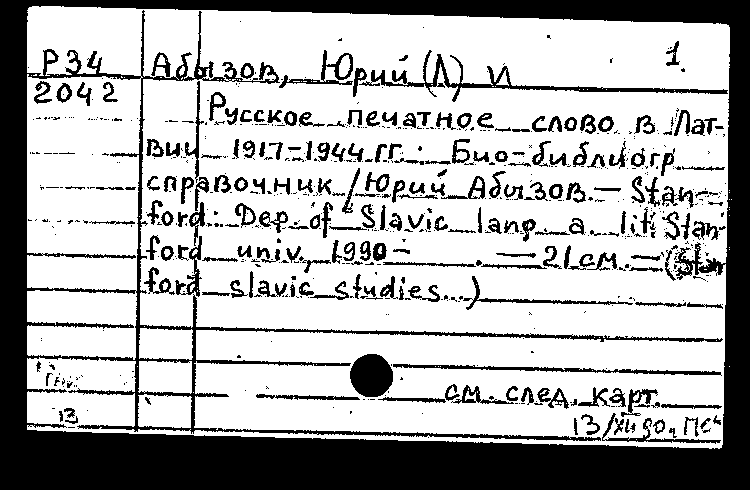 1.
Р34 Абызов, Юрий (Л) И
2042 Русское печатное слово в Лат-
вии 1917-1944 гг. : Био-библиогр
справочник / Юрий Абызов. — Stan-
ford: Dep. of Slavic lang a. lit. Stan-
ford univ., 1990 - . — 21 см. — (Stan
ford slavic studies...)
см. след. карт.
13
13/XII 90.